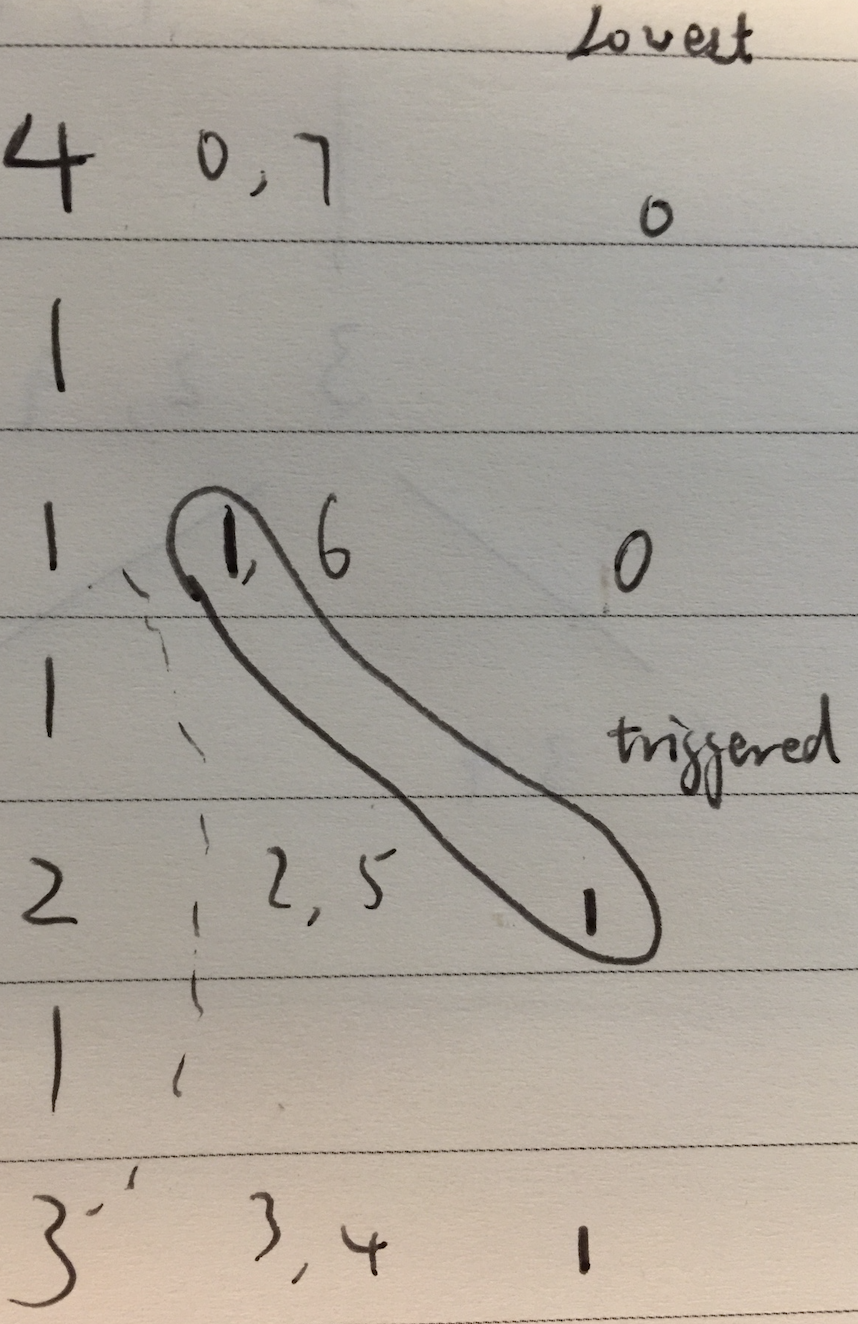 Lowest
4 0, 7 0
1
1 1, 6 0
1 triggered
2 2, 5 1
1
3 3, 4 1